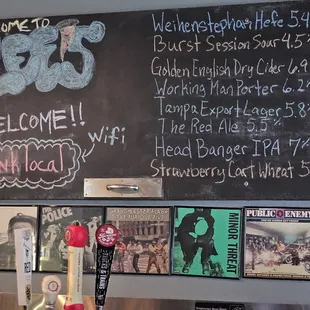 ME TO
WELCOME!!
wifi
NK local
Weihenstephan Hefe 5.4
Burst Session Sour 4.5
Golden English Dry Cider 6.9
Working Man Porter 6.2
Tampa Export Lager 5.8
The Red Ale 5.5%
Head Banger IPA 7
Strawberry Cart Wheat 5
POLICE
GRANDMASTER FLASH
MINOR THREAT
PUBLIC ENEMY